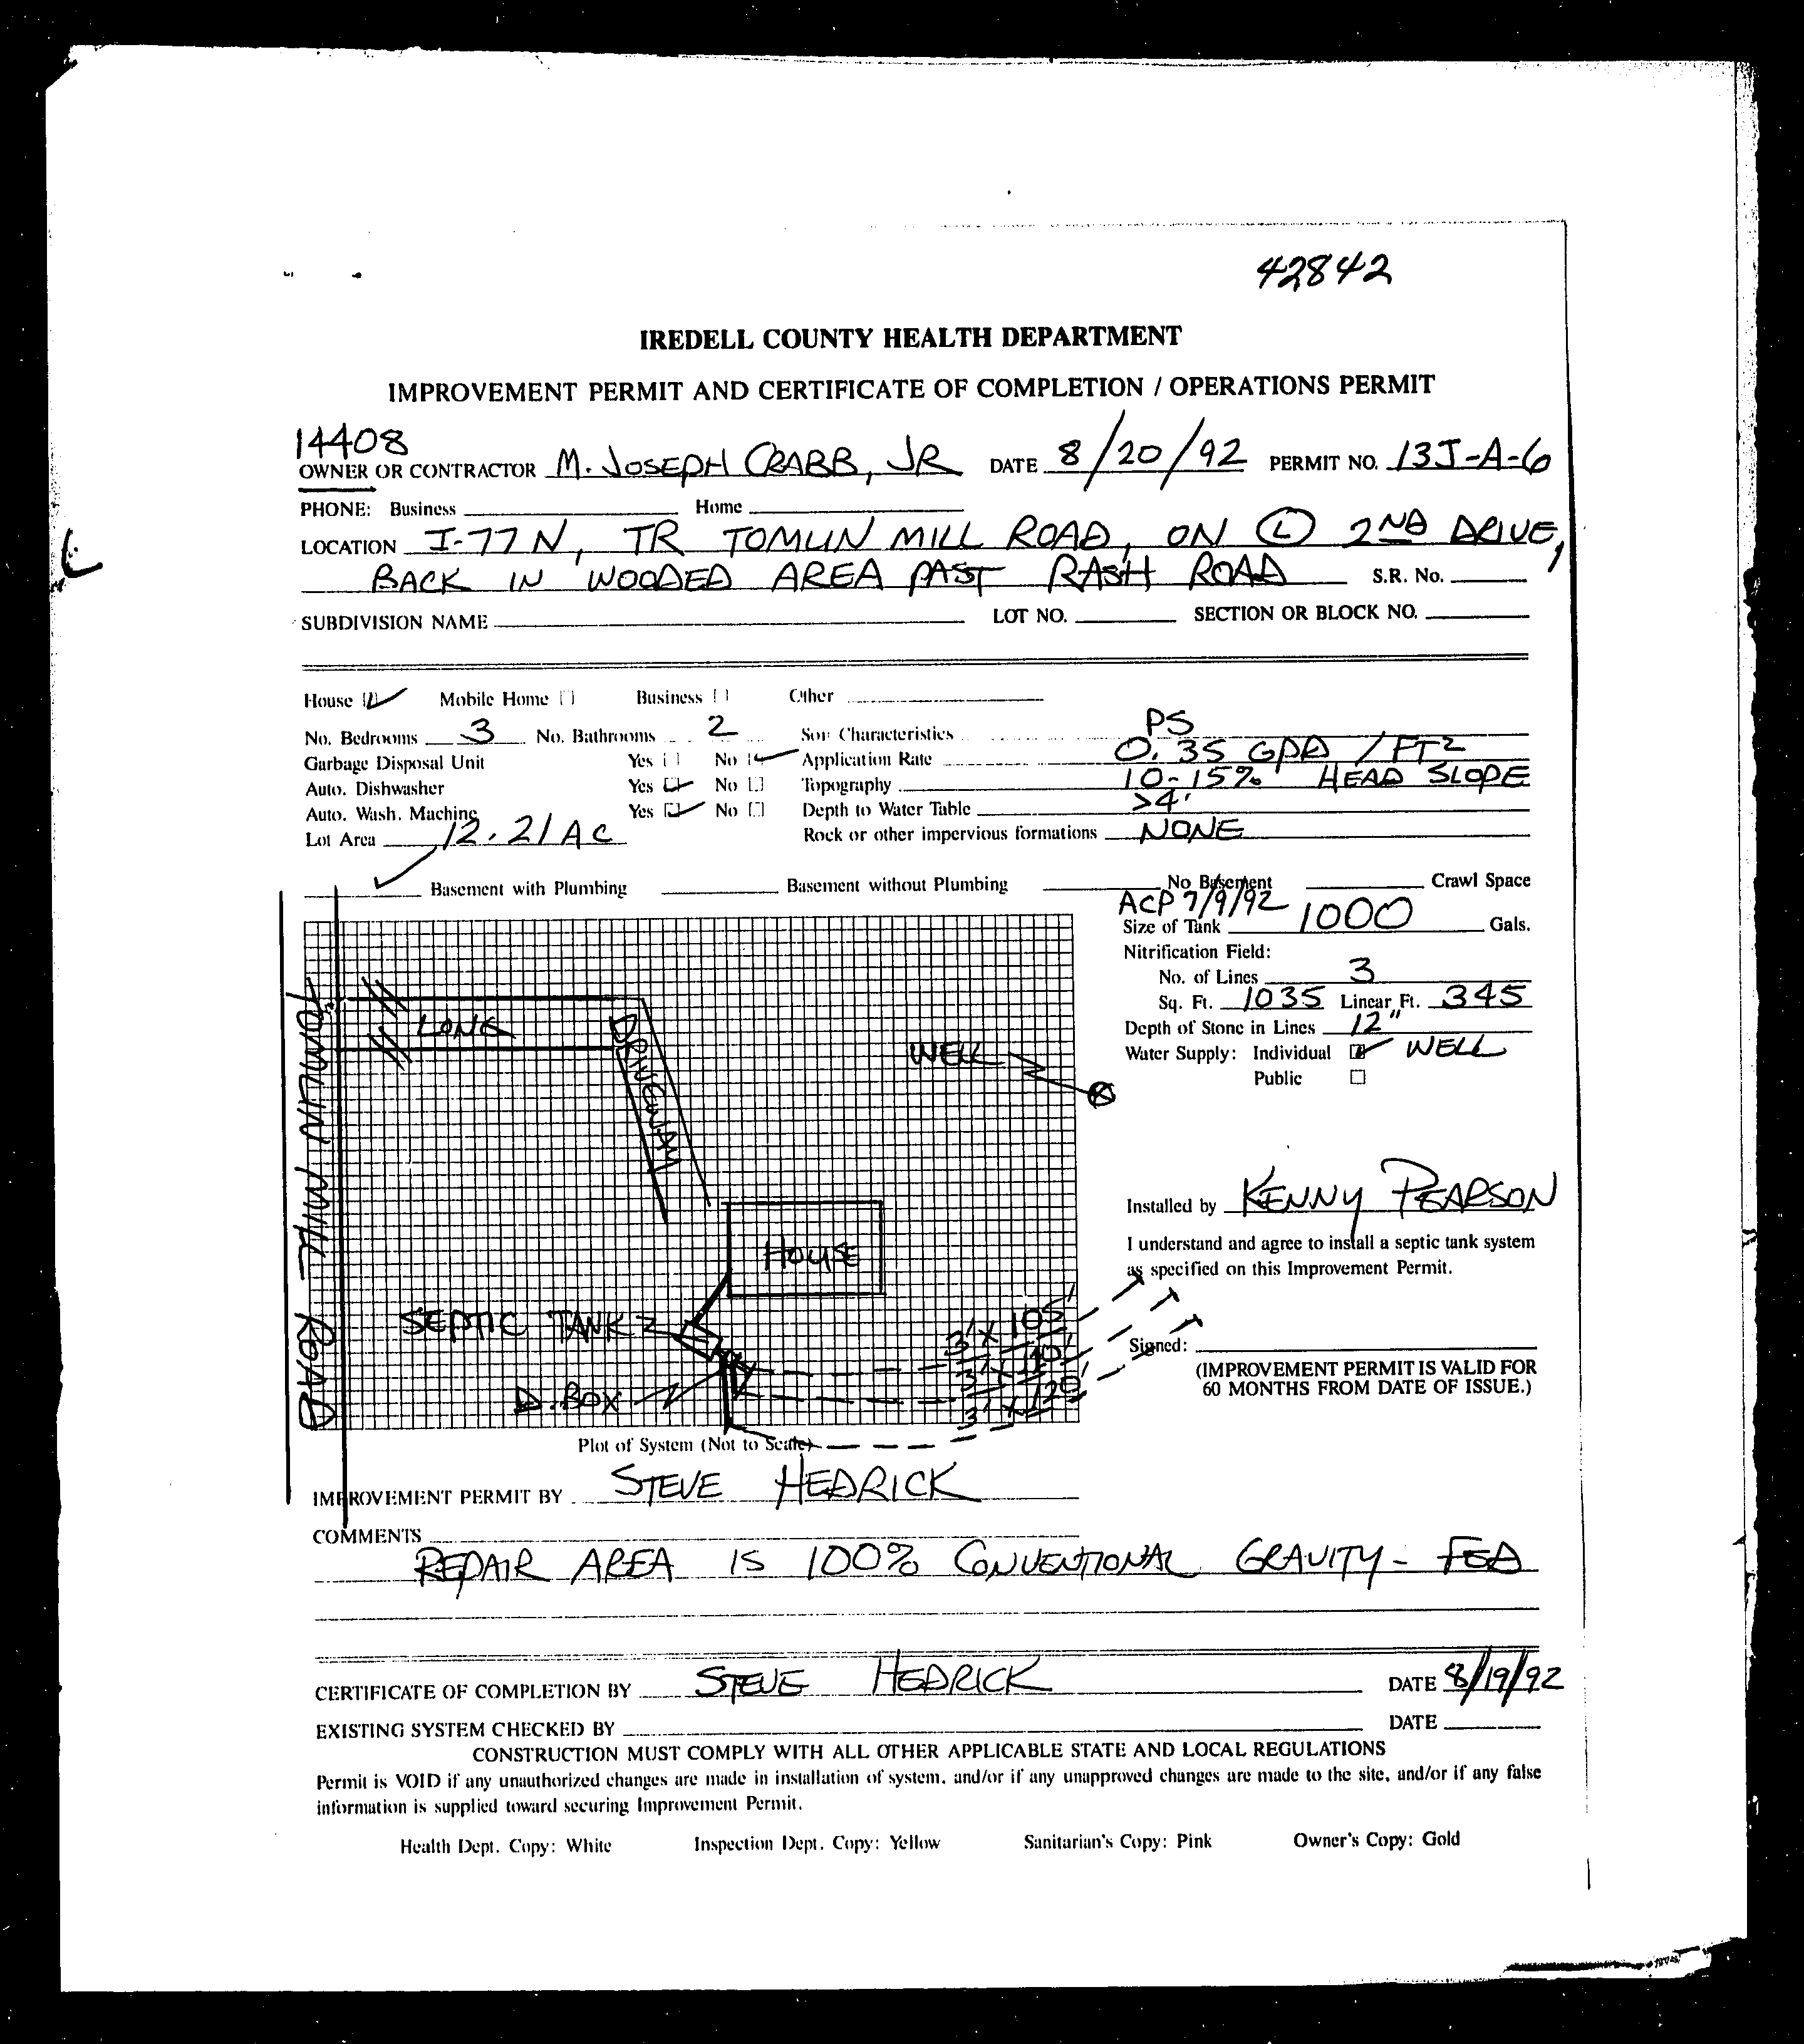 42842
IREDELL COUNTY HEALTH DEPARTMENT
IMPROVEMENT PERMIT AND CERTIFICATE OF COMPLETION / OPERATIONS PERMIT
14408
OWNER OR CONTRACTOR M. JOSEPH CRABB, JR DATE 8/20/92 PERMIT NO. 13J-A-6
PHONE: Business Home
LOCATION I-77 N, TR TOMLIN MILL ROAD, ON Ⓛ 2ND DRIVE,
BACK IN WOODED AREA PAST RASH ROAD S.R. No.
SUBDIVISION NAME LOT NO. SECTION OR BLOCK NO.
House Mobile Home Business Other
PS
No. Bedrooms 3 No. Bathrooms 2 Soil Characteristics
Garbage Disposal Unit Yes No Application Rate 0.35 GPD / FT2
Auto. Dishwasher Yes No Topography 10-15% HEAD SLOPE
Auto. Wash. Machine Yes No Depth to Water Table >4'
Lot Area 12.21 AC Rock or other impervious formations NONE
Basement with Plumbing Basement without Plumbing No Basement Crawl Space
ACP 7/9/92
Size of Tank 1000 Gals.
Nitrification Field:
No. of Lines 3
Sq. Ft. 1035 Linear Ft. 345
Depth of Stone in Lines 12"
Water Supply: Individual WELL
Public
TOMLIN MILL ROAD
LONG
DRIVEWAY
WELL
HOUSE
SEPTIC TANK
D. BOX
3' X 105'
3' X 110'
3' X 120'
Installed by KENNY PEARSON
I understand and agree to install a septic tank system
as specified on this Improvement Permit.
Signed:
(IMPROVEMENT PERMIT IS VALID FOR
60 MONTHS FROM DATE OF ISSUE.)
Plot of System (Not to Scale)
IMPROVEMENT PERMIT BY STEVE HEDRICK
COMMENTS
REPAIR AREA IS 100% CONVENTIONAL GRAVITY - FED
CERTIFICATE OF COMPLETION BY STEVE HEDRICK DATE 8/19/92
EXISTING SYSTEM CHECKED BY DATE
CONSTRUCTION MUST COMPLY WITH ALL OTHER APPLICABLE STATE AND LOCAL REGULATIONS
Permit is VOID if any unauthorized changes are made in installation of system, and/or if any unapproved changes are made to the site, and/or if any false
information is supplied toward securing Improvement Permit.
Health Dept. Copy: White Inspection Dept. Copy: Yellow Sanitarian's Copy: Pink Owner's Copy: Gold